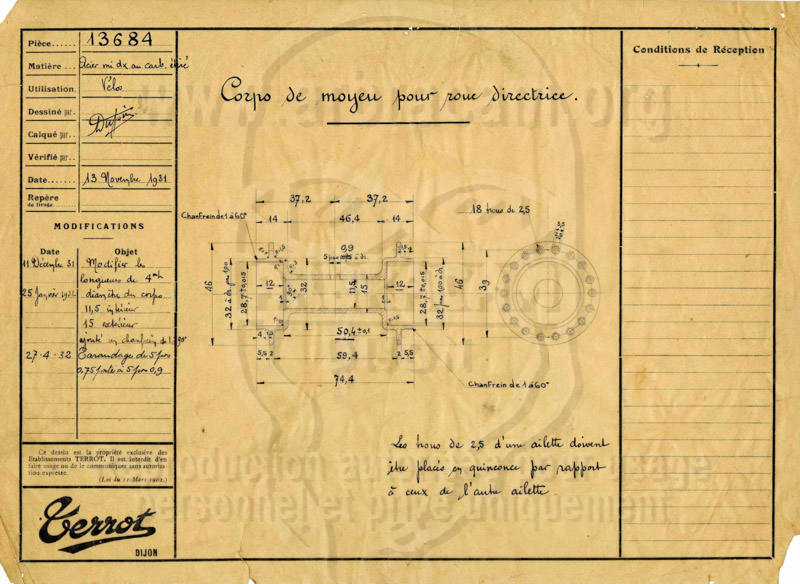 Pièce...... 13684
Matière... Acier mi dx au carb. étiré
Utilisation. Vélos
Dessiné par..
Calqué par..
Vérifié par..
Date....... 13 Novembre 1931
Repère
de tirage.
MODIFICATIONS
Date Objet
11 Décembre 31 Modifier les
longueurs de
25 Janvier du corps
11,5 intérieur
15 extérieur
ajouté un chanfrein de 1 à 90°
27-4-32 Taraudage de 5 pas
0,75 porté à 5 pas 0,9
Ce dessin est la propriété exclusive des
Etablissements TERROT. Il est interdit d'en
faire usage ou de le communiquer sans autorisa-
tion expresse.
(Loi du 11 Mars 1902.)
Terrot
DIJON
Corps de moyeu pour roue directrice.
37,2 37,2
18 trous de 2,5
Chanfrein de 1 à 60°
14 46,4 14
0,9
46
32
28,7
12
32
11,5
15
12
28,7
32
46
39
4
50,4 ±0,1
5,5 2 59,4 2 5,5
74,4
Chanfrein de 1 à 60°
Les trous de 2,5 d'une ailette doivent
être placés en quinconce par rapport
à ceux de l'autre ailette.
Conditions de Réception